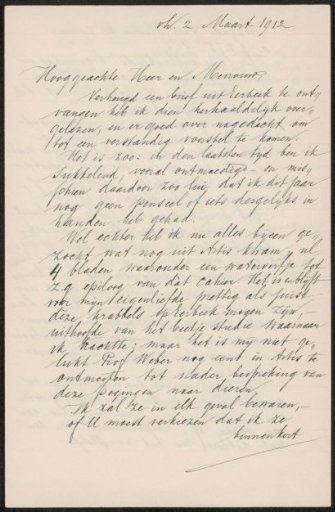 vh. 2 Maart 1912
Hooggeachte Heer en Mevrouw,
Verheugd een brief uit Eerbeek te ont-
vangen heb ik dien herhaaldelijk over-
gelezen, en er goed over nagedacht om
tot een verstandig voorstel te komen.
Het is zoo: in den laatsten tyd ben ik
sukkelend, vooral ontmoedigd - en mis-
schien daardoor zoo lui, dat ik dit jaar
nog geen penseel of iets dergelijks in
handen heb gehad.
Wel echter heb ik nu alles byeen ge-
zocht wat nog uit Artis kwam, nl
4 bladen, waaronder een waterverfje tot
z.g. epiloog van dat cahier. Het is en blyft
voor myn eigenliefde prettig als juist
deze krabbels op Eerbeek mogen zijn, -
uithoofde van het beetje studie waarnaar
ik trachtte; maar het is my niet ge-
lukt Prof Weber nog eens in Artis te
ontmoeten tot nader bespreking van
deze pogingen naar dieren.
Ik zal ze in elk geval bewaren, -
of U moest verkiezen dat ik ze
binnenkort